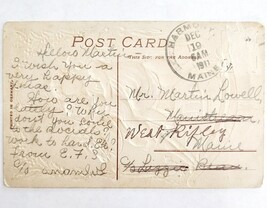 POST CARD
HARMONY
DEC
19
AM
1911
MAINE
Hello Martin
I wish you a
very happy
Xmas.
How are you
lately? Why
dont you come
to the socials
work to hard, Eh?
From E.F.S.
Mr. Martin Lowell
West Ripley
Maine